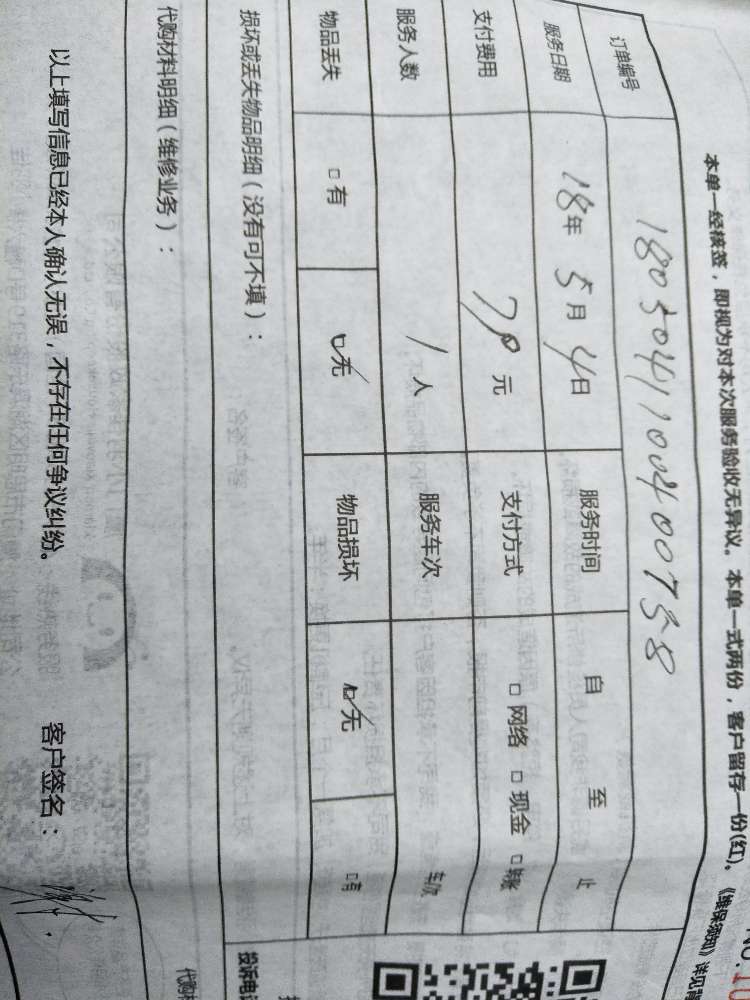 本单一经核签，即视为对本次服务验收无异议。本单一式两份，客户留存一份(红)。《维保须知》详见背
订单编号 180504110040075８
服务日期 18年5月4日 服务时间 自 至 止
支付费用 70元 支付方式 □网络 □现金 □转账
服务人数 1人 服务车次 车次
物品丢失 □有 ☑无 物品损坏 ☑无 □有
损坏或丢失物品明细（没有可不填）：
代购材料明细（维修业务）：
以上填写信息已经本人确认无误，不存在任何争议纠纷。 客户签名：
NO.10
投诉电话
代购材